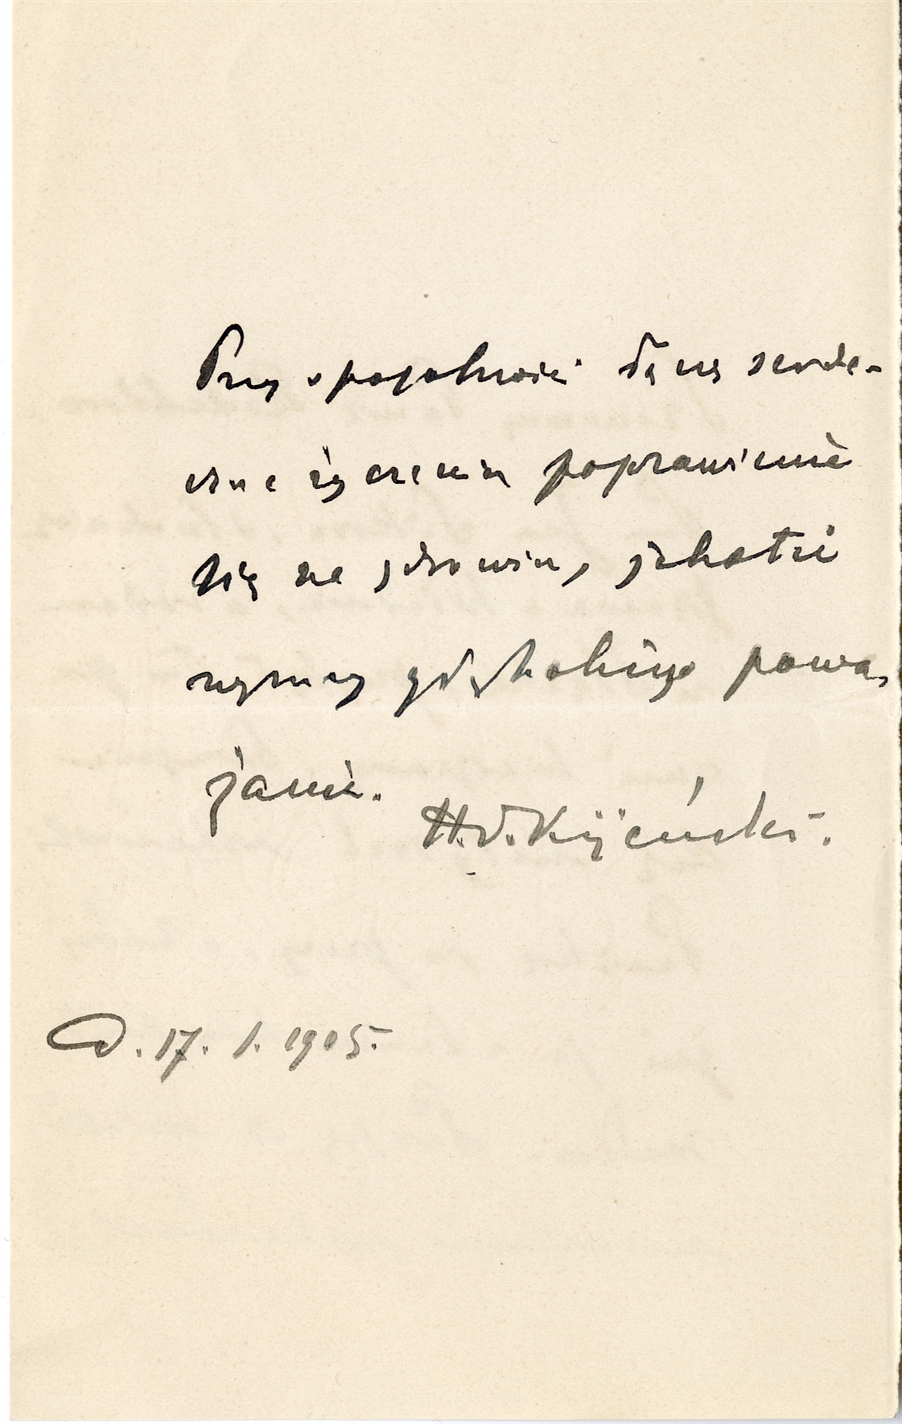 Przy sposobności serde-
czne życzenia poprawienia
się na zdrowiu, jakoteż
wyrazy głębokiego powa-
żania.
Kijeński.
D. 17. 1. 1905.